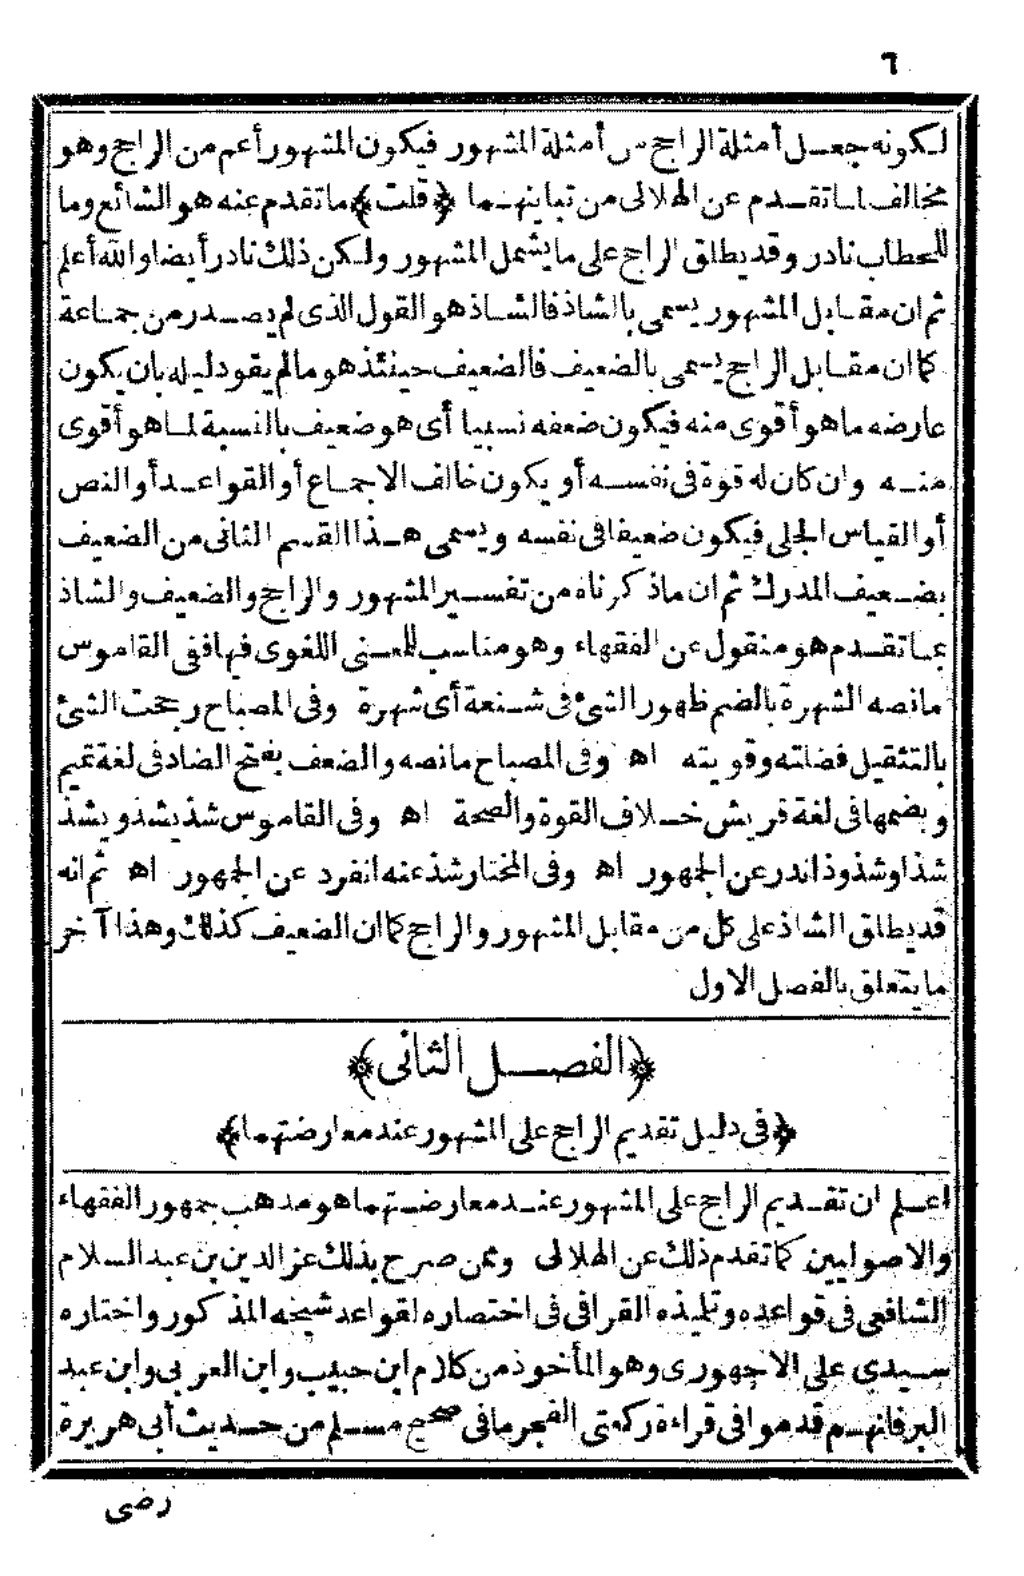 ٦
لكونه جعل أمثلة الراجح من أمثلة المشهور فيكون المشهور أعم من الراجح وهو
مخالف لما تقدم عن الهلالى من تباينهما ﴿قلت﴾ ما تقدم عنه هو الشائع وما
للحطاب نادر وقد يطلق الراجح على ما يشمل المشهور ولكن ذلك نادر أيضا والله أعلم
ثم ان مقابل المشهور يسمى بالشاذ فالشاذ هو القول الذى لم يصدر من جماعة
كما ان مقابل الراجح يسمى بالضعيف فالضعيف حينئذ هو ما لم يقو دليله بان يكون
عارضه ما هو أقوى منه فيكون ضعفه نسبيا أى هو ضعيف بالنسبة لما هو أقوى
منه وان كان له قوة فى نفسه أو يكون خالف الاجماع أو القواعد أو النص
أو القياس الجلى فيكون ضعيفا فى نفسه ويسمى هذا القسم الثانى من الضعيف
بضعيف المدرك ثم ان ما ذكرناه من تفسير المشهور والراجح والضعيف والشاذ
بما تقدم هو منقول عن الفقهاء وهو مناسب للمعنى اللغوى فيها ففى القاموس
ما نصه الشهرة بالضم ظهور الشئ فى شنعة أى شهرة وفى المصباح رجحت الشئ
بالتثقيل فضلته وقويته اه وفى المصباح ما نصه والضعف بفتح الضاد فى لغة تميم
وبضمها فى لغة قريش خلاف القوة والصحة اه وفى القاموس شذ يشذ ويشذ
شذا وشذوذا ندر عن الجمهور اه وفى المختار شذ عنه انفرد عن الجمهور اه ثم انه
قد يطلق الشاذ على كل من مقابل المشهور والراجح كما ان الضعيف كذلك وهذا آخر
ما يتعلق بالفصل الاول
﴿الفصل الثانى﴾
﴿فى دليل تقديم الراجح على المشهور عند معارضتهما﴾
اعلم ان تقديم الراجح على المشهور عند معارضتهما هو مذهب جمهور الفقهاء
والاصوليين كما تقدم ذلك عن الهلالى وممن صرح بذلك عز الدين بن عبد السلام
الشافعى فى قواعده وتلميذه القرافى فى اختصاره لقواعد شيخه المذكور واختاره
سيدى على الاجهورى وهو المأخوذ من كلام ابن حبيب وابن العربى وابن عبد
البر فانهم قدموا فى قراءة ركعتى الفجر ما فى صحيح مسلم من حديث أبى هريرة
رضى